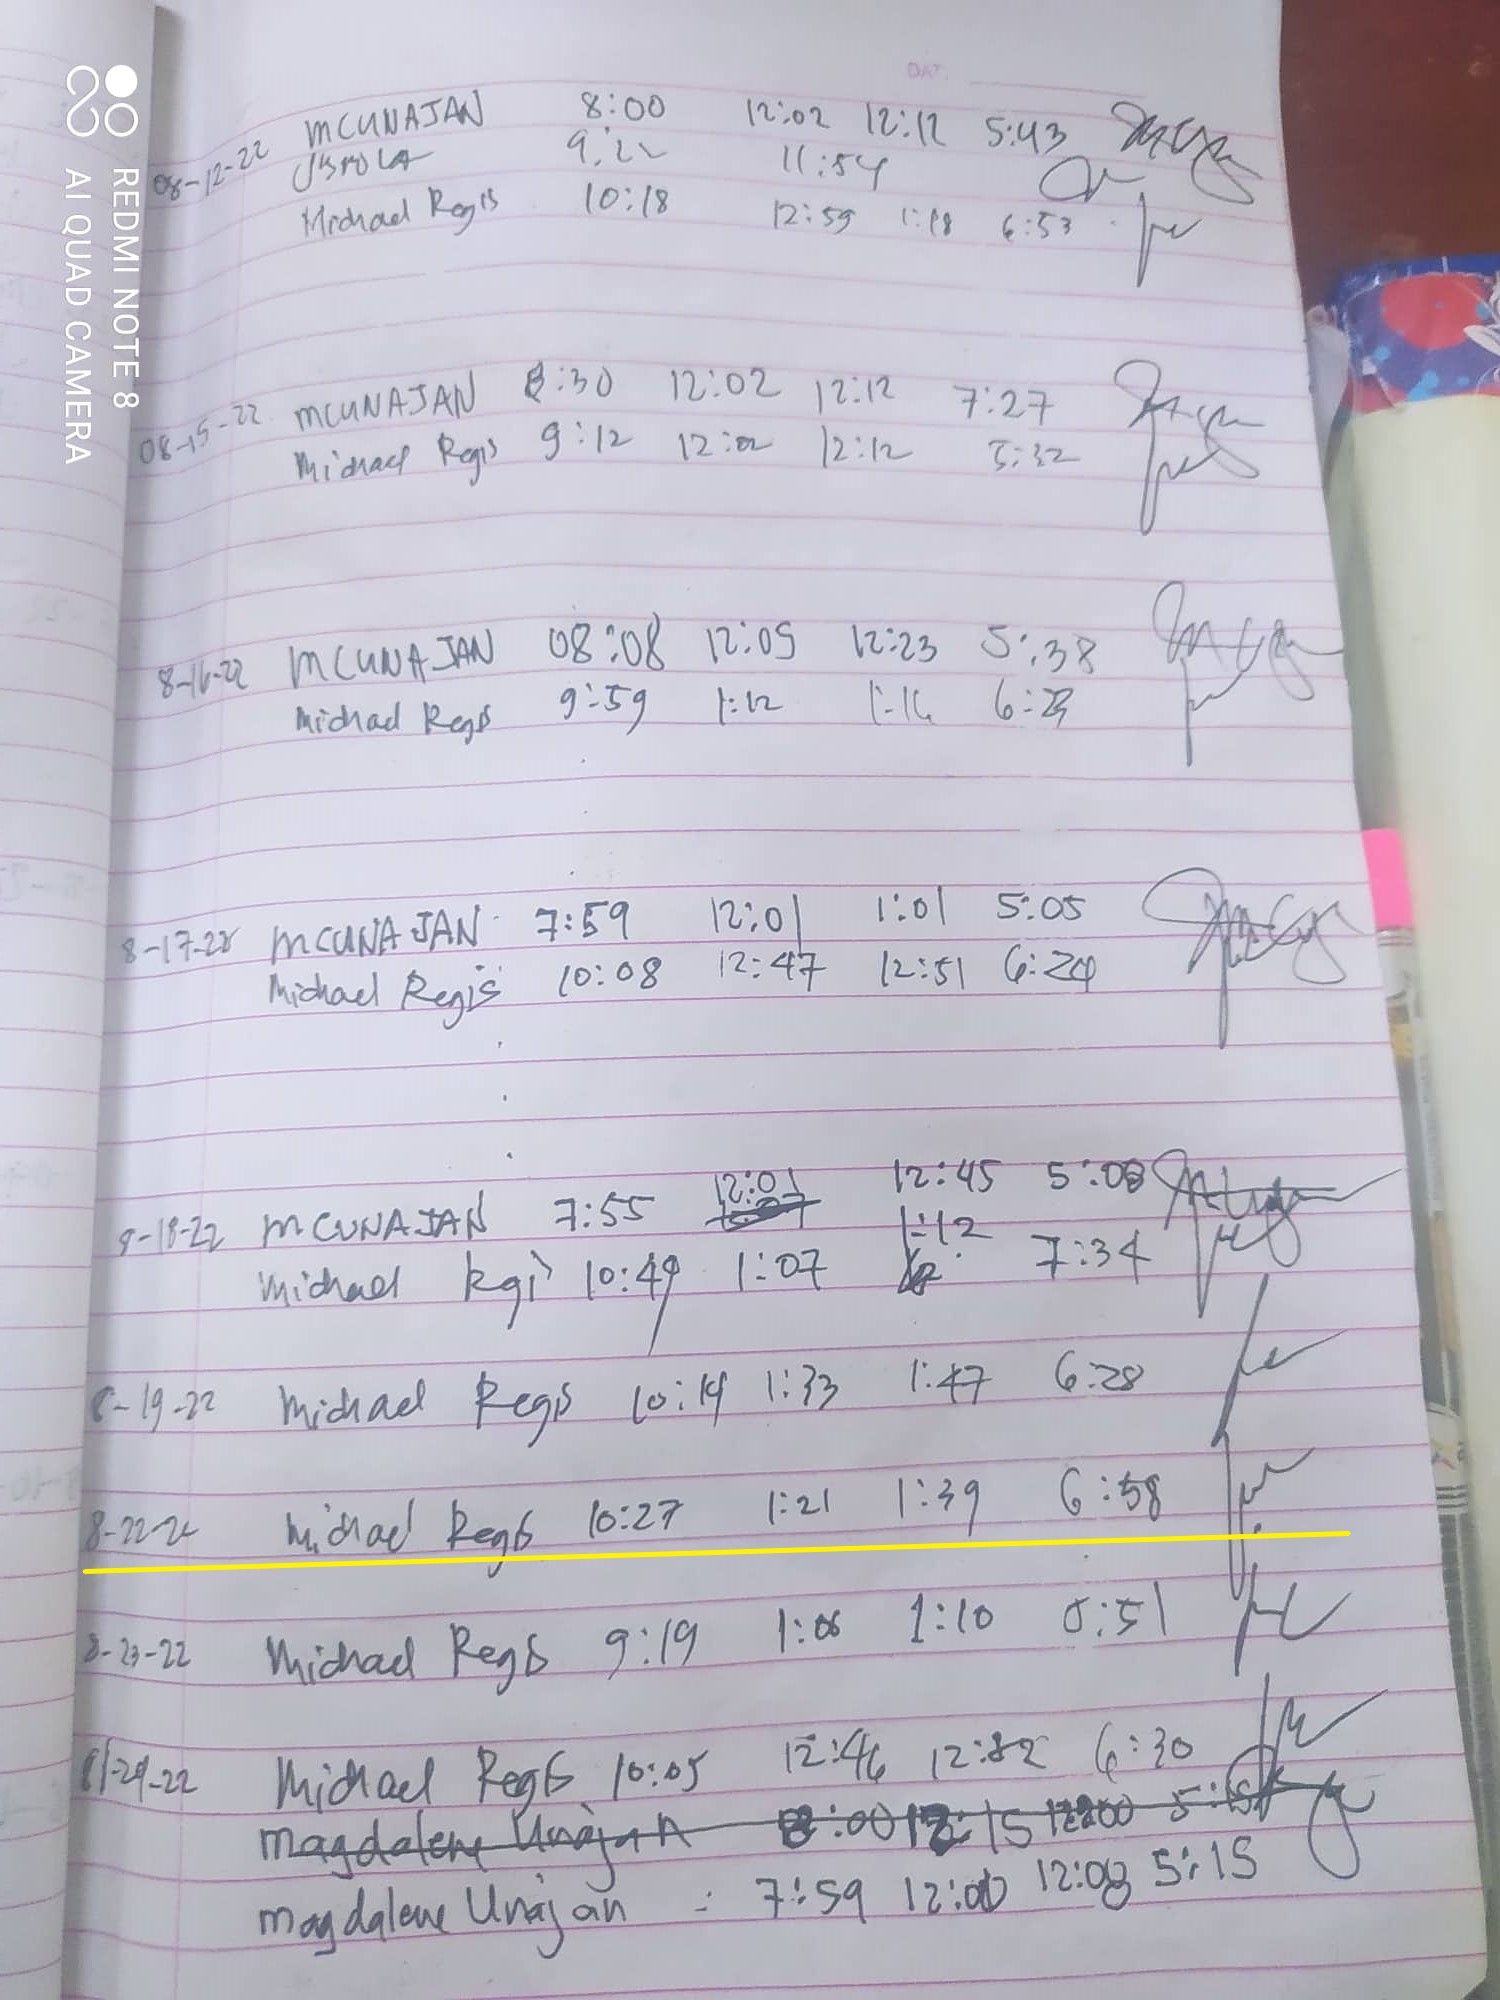 REDMI NOTE 8
AI QUAD CAMERA
08-12-22 MCUNAJAN 8:00 12:02 12:12 5:43
11:54
Michael Regis 10:18 12:59 1:18 6:53
08-15-22 MCUNAJAN 8:30 12:02 12:12 7:27
Michael Regis 9:12 12:02 12:12 5:32
8-16-22 MCUNAJAN 08:08 12:05 12:23 5:38
Michael Regis 9:59 1:12 6:29
8-17-22 MCUNAJAN 7:59 12:01 1:01 5:05
Michael Regis 10:08 12:47 12:51 6:24
8-18-22 MCUNAJAN 7:55 12:01 12:45 5:00
Michael Regis 10:49 1:07 1:12 7:34
8-19-22 Michael Regis 10:14 1:33 1:47 6:28
8-22-22 Michael Regis 10:27 1:21 1:39 6:58
8-23-22 Michael Regis 9:19 1:06 1:10 6:51
8-24-22 Michael Regis 10:05 12:46 6:30
Magdalene Unajan 8:00
Magdalene Unajan : 7:59 12:00 12:08 5:15